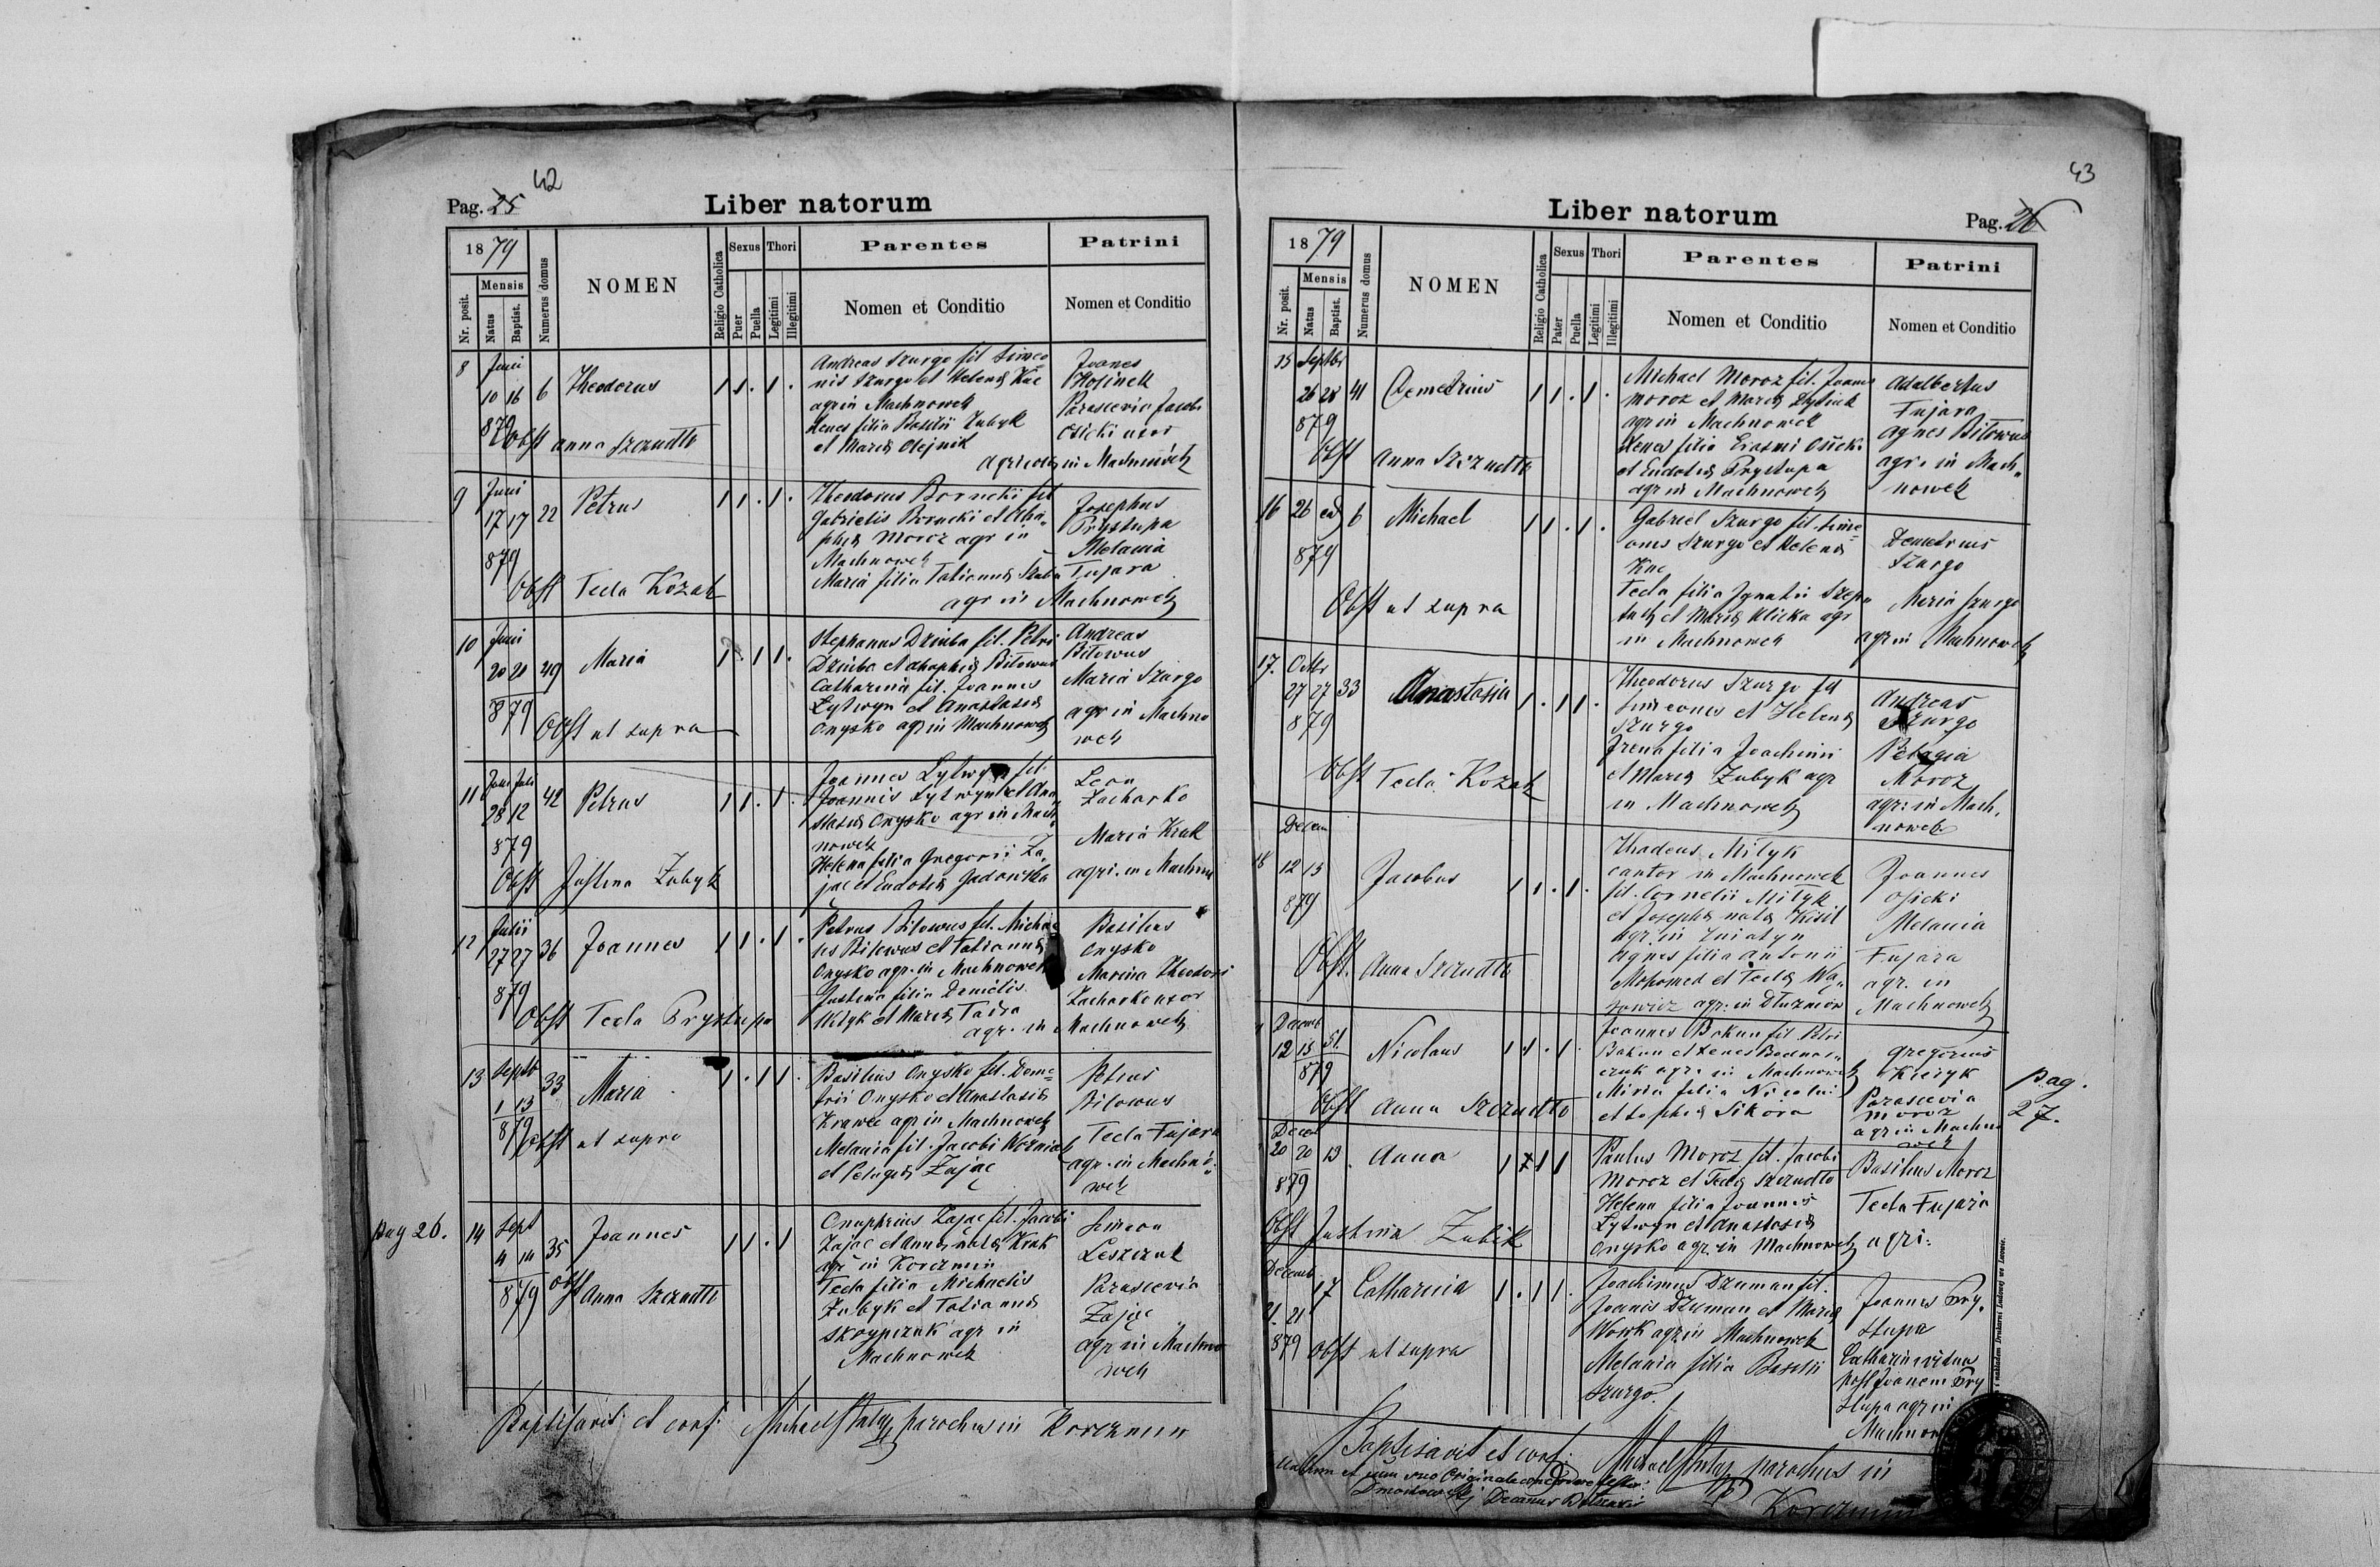 42
Pag. 25
Liber natorum
1879
Nr. posit.
Mensis
Natus
Baptist.
Numerus domus
NOMEN
Religio Catholica
Sexus
Puer
Puella
Thori
Legitimi
Illegitimi
Parentes
Nomen et Conditio
Patrini
Nomen et Conditio
8 Junii
10 16 6 Theodorus 1 1 . 1 .
879
Obst Anna Szczudlo
Andreas Szurgo fil Simeo
nis Szurgo et Helenæ Kuc
agr in Machnowek
Xenes filia Basilii Zubyk
et Mariæ Olejnik
Joanes
Parascevia Jacobi
Osicki uxor
agricolæ in Machnowek
9 Junii
17 17 22 Petrus 1 1 . 1 .
879
Obst Tecla Kozak
Theodorus Borncki fil
Gabrielis Borncki et Aha
phiæ Moroz agr in
Machnowek
Maria filia Tatiannæ
Josephus
Prystupa
Melania
Fujara
agr in Machnowek
10 Junii
20 20 49 Maria 1 . 1 1 .
879
Obst ut supra
Stephanus Dziuba fil. Petri
Dziuba et Ahaphiæ Bitowus
Catharina fil. Joannes
Lytwyn et Anastasiæ
Onysko agr in Machnowek
Andreas
Bitowus
Maria Szurgo
agr in Machno
wek
11 Juni Juli
28 12 42 Petrus 1 1 . 1 .
879
Obst Justina Zubyk
Joannes Lytwyn fil.
Joannis Lytwyn et Ana
stasiæ Onysko agr in Mach
nowek
Helena filia Gregorii Za
jac et Eudoxiæ Gadowska
Leon
Zacharko
Maria Kruk
agri. in Machnow
12 Julii
27 27 36 Joannes 1 1 . 1 .
879
Obst Tecla Prystupa
Petrus Bitowus fil. Michae
lis Bitowus et Tatiannæ
Onysko agr. in Machnowek
Justina filia Danielis
et Mariæ
agr. in Machnowek
Basilius
Onysko
Marina Theodori
Zacharko uxor
13 Septb
1 13 33 Maria 1 . 1 1 .
879
Obst ut supra
Basilius Onysko fil. Deme
trii Onysko et Anastasiæ
Krawec agr in Machnowek
Melania fil. Jacobi Wozniak
et Pelagiæ Zając
Petrus
Bitowus
Tecla Fujara
agr. in Machno
wek
pag 26.
14 Sept
4 14 35 Joannes 1 1 . 1
879
Obst Anna Szczudlo
Onuphrius Zając fil. Jacobi
Zając et Annæ natæ Kruk
agr in Korczmin
Tecla filia Michaelis
Zubyk et Tatiannæ
Skrypczuk agr in
Machnowek
Simeon
Leszczuk
Parascevia
Zając
agr in Machno
wek
Baptisavit et conf: Michael parochus in Korczmin
43
Liber natorum
Pag. 26
1879
Nr. posit.
Mensis
Natus
Baptist.
Numerus domus
NOMEN
Religio Catholica
Sexus
Pater
Puella
Thori
Legitimi
Illegitimi
Parentes
Nomen et Conditio
Patrini
Nomen et Conditio
15 Septbr
26 28 41 Demetrius 1 1 . 1 .
879
Obst Anna Szczudlo
Michael Moroz fil. Joannis
Moroz et Mariæ
agr in Machnowek
Xenes filia Erasmi Osicki
et Eudoxiæ Prystupa
agr in Machnowek
Adalbertus
Fujara
Agnes Bitowus
agr. in Mach
nowek
16 26 ead 6 Michael 1 1 . 1 .
879
Obst ut supra
Gabriel Szurgo fil. Sime
onis Szurgo et Helenæ
Kuc
Tecla filia Ignatii
et Mariæ Klicka agr
in Machnowek
Demetrius
Szurgo
Maria Szurgo
agr in Machnowek
17. Octbr
27 27 33 Anastasia 1 . 1 1 .
879
Obst Tecla Kozak
Theodorus Szurgo fil
Simeonis et Helenæ
Szurgo
Irena filia Joachimi
et Mariæ Zubyk agr
in Machnowek
Andreas
Szurgo
Pelagia
Moroz
agr: in Mach.
nowek
Decem
18 12 13 Jacobus 1 1 . 1 .
879
Obst. Anna Szczudlo
Thadeus Mityk
cantor in Machnowek
fil. Cornelii Mityk
et Josephæ natæ Kisil
agr. in Zniatyn
Agnes filia Antonii
et Teclæ Wą
sowicz agr: in Dłużniów
Joannes
Osicki
Melania
Fujara
agr. in
Machnowek
Decemb
12 13 51. Nicolaus 1 1 . 1
879
Obst Anna Szczudlo
Joannes Bokun fil. Petri
Bakun et Xenes Bodnar
czuk agr. in Machnowek
Maria filia Nicolai
et Sophiæ Sikora
Gregorius
Parascevia
Moroz
agr in Machno
wek
pag.
27.
Decem
20 20 13. Anna 1 1 1
879
Obst Justina Zubik
Paulus Moroz fil. Jacobi
Moroz et Teclæ Szczudlo
Helena filia Joannis
Lytwyn et Anastasiæ
Onysko agr. in Machnowek
Basilius Moroz
Tecla Fujara
agri:
Decemb
21. 21 17 Catharina 1 . 1 1 .
879
Obst ut supra
Joachimus Dzuman fil.
Joanis Dzuman et Mariæ
Wowk agr in Machnowek
Melania filia Basilii
Szurgo.
Joannes Pry.
stupa
Catharina vidua
post Joanem Pry
stupa agr in
Machnow
nakładem Drukarni Ludowej we Lwowie.
Baptisavit et conf: Michael parochus in
Korczmin
cum suo Originali concordare testor
Decanus